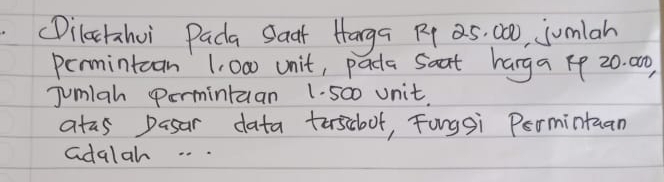 Diketahui Pada saat Harga Rp 25.000, jumlah
permintaan 1.000 unit, pada saat harga Rp 20.000,
Jumlah permintaan 1.500 unit.
atas Dasar data tersebut, Fungsi Permintaan
adalah ...